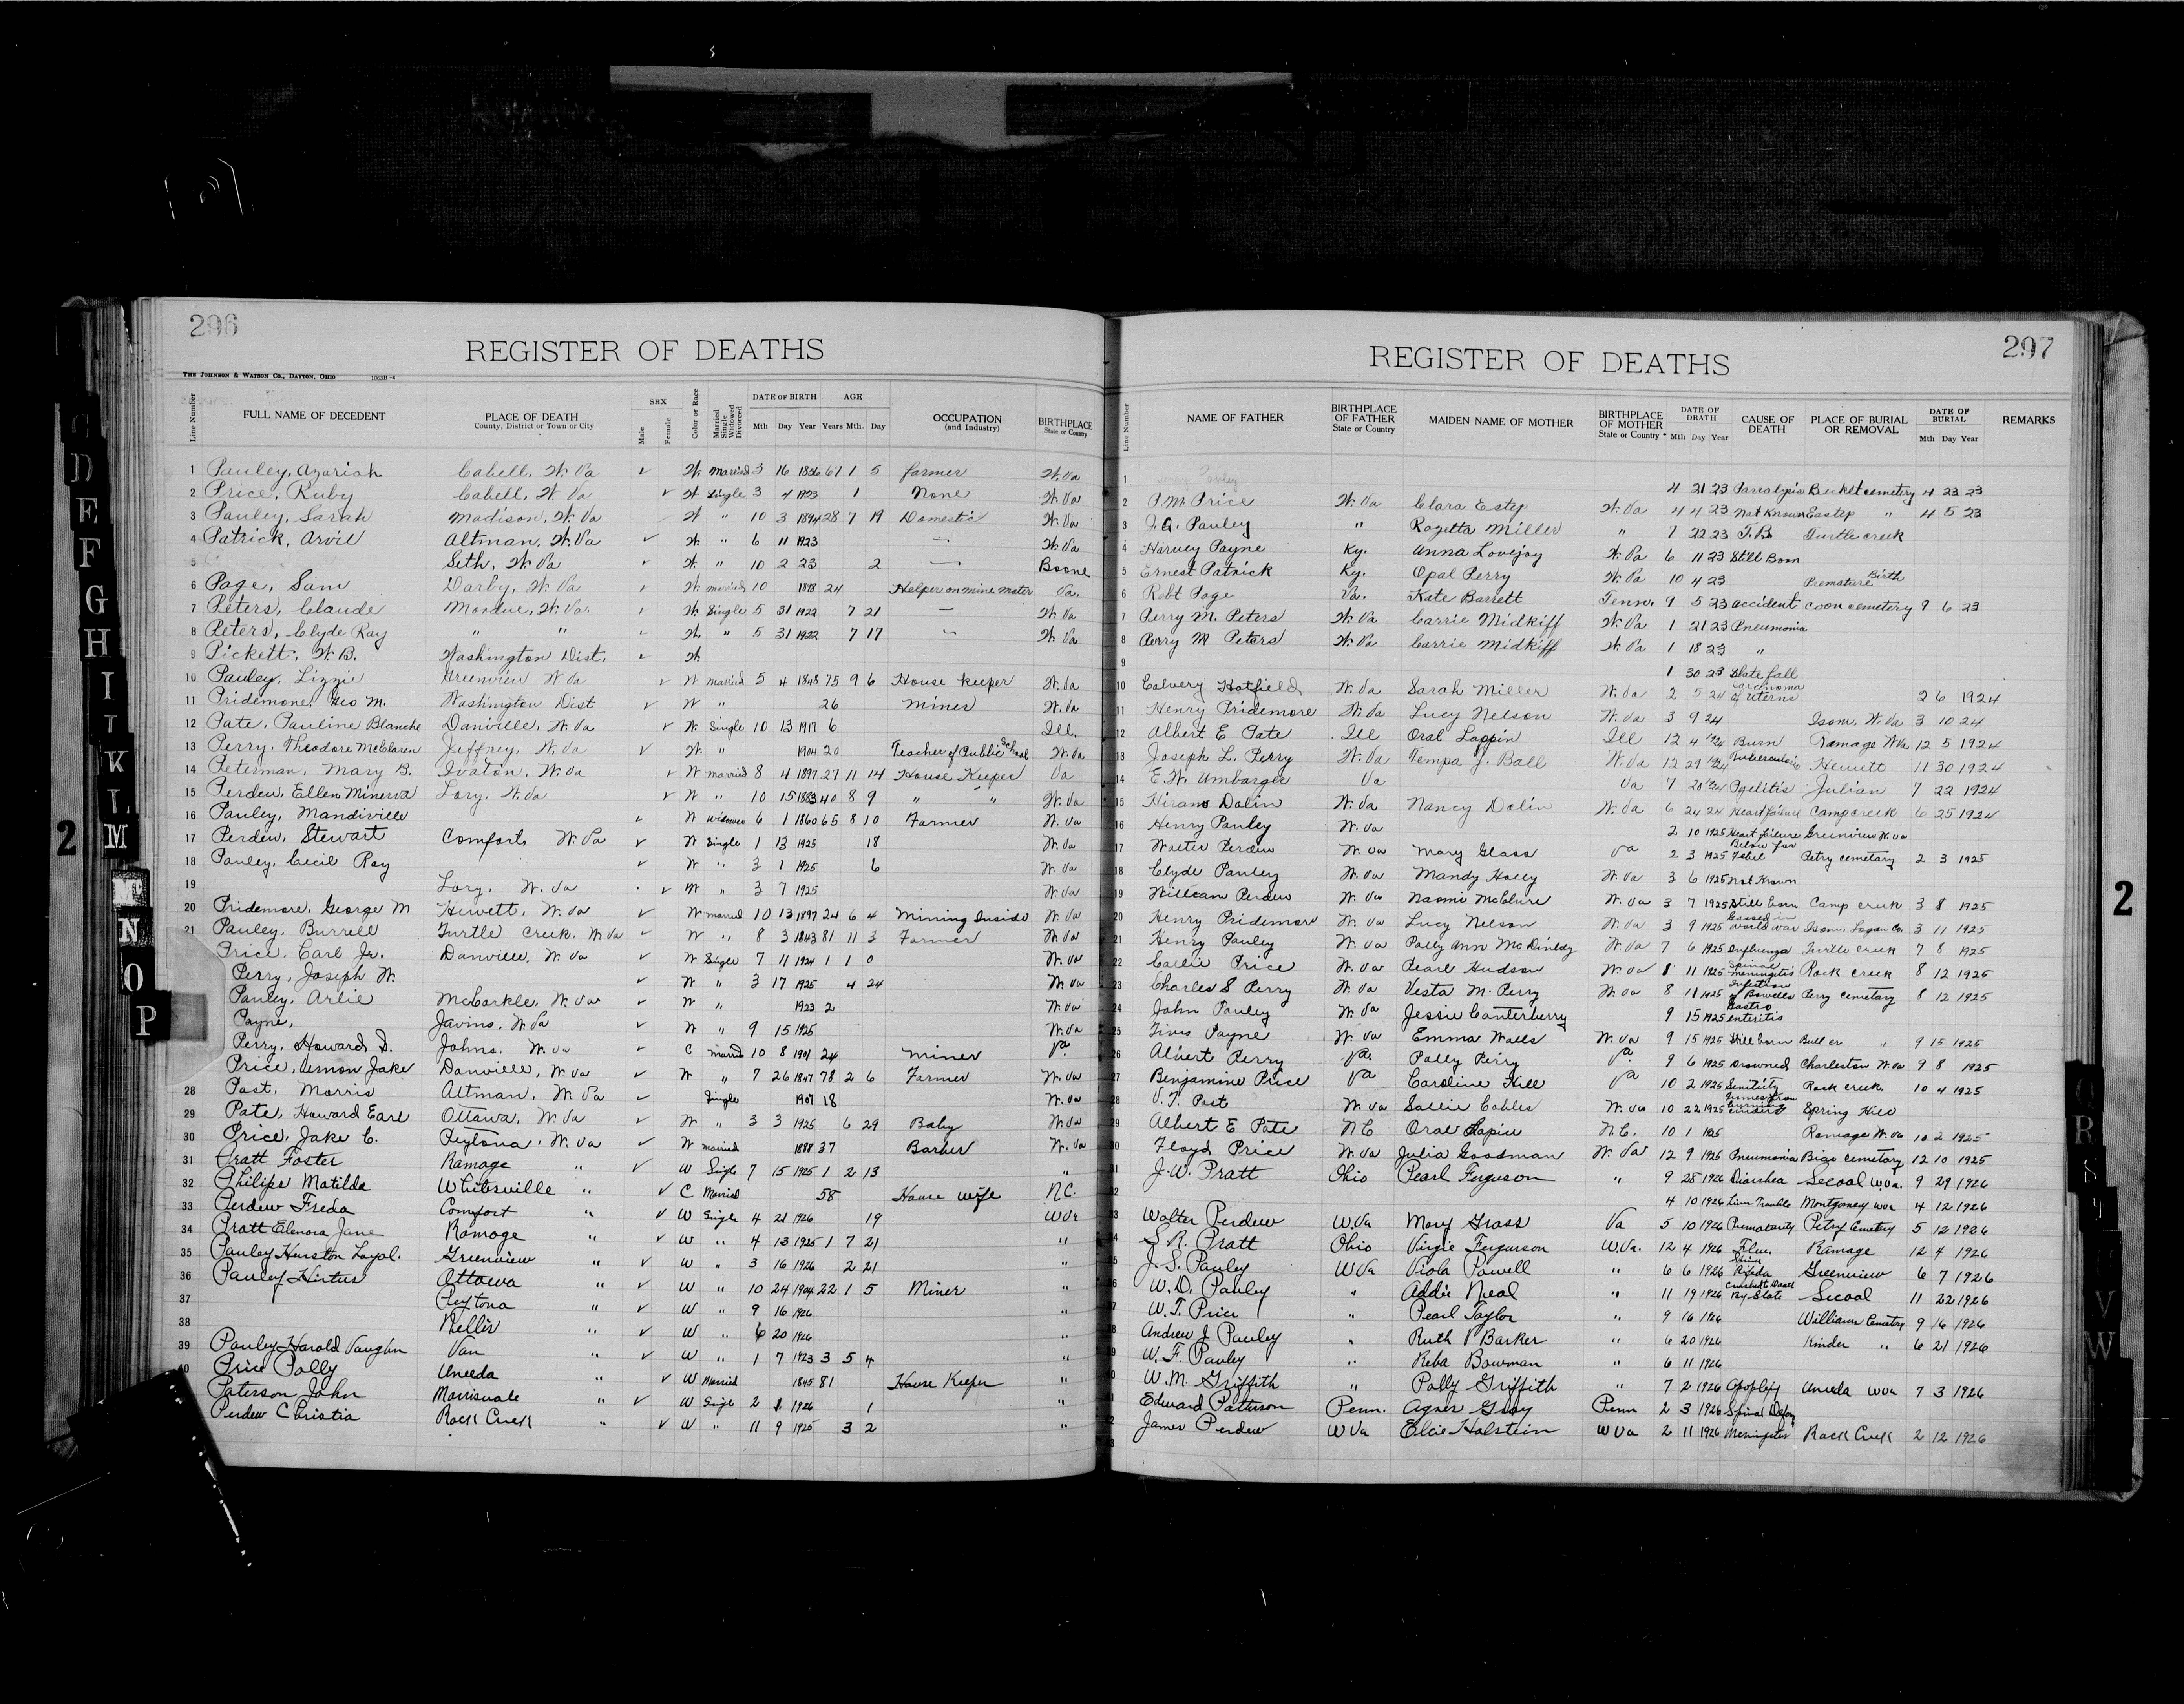 296
REGISTER OF DEATHS
THE JOHNSON & WATSON CO., DAYTON, OHIO 1063B-4
Line Number FULL NAME OF DECEDENT PLACE OF DEATH County, District or Town or City SEX Male Female Color or Race Married Single Widowed Divorced DATE OF BIRTH Mth Day Year AGE Years Mth. Day OCCUPATION (and Industry) BIRTHPLACE State or County
1 Pauley, Azariah Cabell, W. Va ✓ W. Married 3 16 1856 67 1 5 farmer W. Va
2 Price, Ruby Cabell, W Va ✓ W Single 3 4 1923 1 None W. Va
3 Pauley, Sarah Madison, W. Va W " 10 3 1894 28 7 19 Domestic W. Va
4 Patrick, Arvil Altman, W. Va ✓ W. " 6 11 1923 — W. Va
5 Seth, W Va ✓ W. " 10 2 23 2 — Boone
6 Page, Sam Darby, W. Va ✓ W married 10 1898 24 Helper on mine motor Va.
7 Peters, Claude Mordue, W. Va. ✓ W Single 5 31 1922 7 21 — W. Va
8 Peters, Clyde Ray " " ✓ W. " 5 31 1922 7 17 — W. Va
9 Pickett, W. B. Washington Dist. ✓ W.
10 Pauley, Lizzie Greenview W Va ✓ W married 5 4 1848 75 9 6 House keeper W. Va
11 Pridemore, Geo M. Washington Dist ✓ W " 26 miner W. Va
12 Pate, Pauline Blanche Danville, W. Va ✓ W. Single 10 13 1917 6 Ill.
13 Perry, Theodore McClaren Jeffrey, W. Va ✓ W. " 1904 20 Teacher of Public School W. Va
14 Peterman, Mary B. Ivaton, W. Va ✓ W married 8 4 1897 27 11 14 House Keeper Va
15 Perdew, Ellen Minerva Lory, W. Va ✓ W " 10 15 1883 40 8 9 " " W. Va
16 Pauley, Mandiville ✓ W widower 6 1 1860 65 8 10 Farmer W. Va
17 Perdew, Stewart Comfort, W. Va ✓ W Single 1 13 1925 18 W. Va
18 Pauley, Cecil Ray ✓ W " 3 1 1925 6 W. Va
19 Lory, W. Va ✓ W " 3 7 1925 W. Va
20 Pridemore, George M Hewett, W. Va ✓ W married 10 13 1897 24 6 4 Mining Inside W. Va
21 Pauley, Burrell Turtle Creek, W. Va ✓ W " 8 3 1843 81 11 3 Farmer W. Va
Price, Carl Jr. Danville, W. Va ✓ W Single 7 11 1924 1 1 0 W. Va
Perry, Joseph W. ✓ W " 3 17 1925 4 24 W Va
Pauley, Arlie McCorkle, W. Va ✓ W " 1923 2 W. Va
Payne, Javins, W. Va ✓ W " 9 15 1925 W. Va
Perry, Howard D. Johns, W. Va ✓ C married 10 8 1901 24 miner Va
Price, Vernon Jake Danville, W. Va ✓ W " 7 26 1847 78 2 6 Farmer W. Va
28 Post, Morris Altman, W. Va ✓ Single 1907 18 W. Va
29 Pate, Howard Earl Ottawa, W. Va ✓ W " 3 3 1925 6 29 Baby W. Va
30 Price, Jake C. Peytona, W. Va ✓ W married 1888 37 Barber W. Va
31 Pratt Foster Ramage " ✓ W Single 7 15 1925 1 2 13 "
32 Philips Matilda Whitesville " ✓ C Married 58 House wife N.C.
33 Perdew Freda Comfort " ✓ W Single 4 21 1926 19 W Va
34 Pratt Elenora Jane Ramage " ✓ W " 4 13 1925 1 7 21 "
35 Pauley Hurston Loyal. Greenview " ✓ W " 3 16 1926 2 21 "
36 Pauley Hirtus Ottawa " ✓ W " 10 24 1904 22 1 5 Miner "
37 Peytona " ✓ W " 9 16 1926 "
38 Nellis " ✓ W " 6 20 1926 "
39 Pauley Harold Vaughn Van " ✓ W " 1 7 1923 3 5 4 "
40 Price Polly Uneeda " ✓ W Married 1845 81 House Keeper "
Paterson John Morrisvale " ✓ W Single 2 2 1926 1 "
Perdew Christia Rock Creek " ✓ W " 11 9 1925 3 2 "
297
REGISTER OF DEATHS
Line Number NAME OF FATHER BIRTHPLACE OF FATHER State or Country MAIDEN NAME OF MOTHER BIRTHPLACE OF MOTHER State or Country DATE OF DEATH Mth Day Year CAUSE OF DEATH PLACE OF BURIAL OR REMOVAL DATE OF BURIAL Mth Day Year REMARKS
1 4 21 23 Paralysis cemetery 4 23 23
2 P. M. Price W. Va Clara Estep W. Va 4 4 23 Not Known Eastep " 4 5 23
3 J. Q. Pauley " Rozetta Miller " 7 22 23 T.B. Turtle creek
4 Harvey Payne Ky. Anna Lovejoy W. Va 6 11 23 Still Born
5 Ernest Patrick Ky. Opal Perry W. Va 10 4 23 Premature Birth
6 Robt Page Va. Kate Barrett Tenn. 9 5 23 accident Coon cemetery 9 6 23
7 Perry M. Peters W. Va Carrie Midkiff W. Va 1 21 23 Pneumonia
8 Perry M Peters W. Va Carrie Midkiff W. Va 1 18 23 "
9 1 30 23 Slate fall
10 Calvery Hatfield W. Va Sarah Miller W. Va 2 5 24 Carcinoma of Uterus 2 6 1924
11 Henry Pridemore W. Va Lucy Nelson W. Va 3 9 24 Isom, W. Va 3 10 24
12 Albert E Pate Ill Oral Lappin Ill 12 4 1924 Burn Ramage W Va 12 5 1924
13 Joseph L. Perry W. Va Tempa J. Ball W. Va 12 29 1924 Tuberculosis Hewett 11 30 1924
14 E. W. Umbarger Va Va 7 20 24 Pyelitis Julian 7 22 1924
15 Hiram Dolin W. Va Nancy Dolin W. Va 6 24 24 Heart failure Camp creek 6 25 1924
16 Henry Pauley W. Va 2 10 1925 Heart failure Greenview W. Va
17 Walter Perdew W. Va Mary Glass Va 2 3 1925 Petry cemetary 2 3 1925
18 Clyde Pauley W. Va Mandy Holly W. Va 3 6 1925 Not Known
19 William Perdew W. Va Naomi McClure W. Va 3 7 1925 Still born Camp creek 3 8 1925
20 Henry Pridemore W. Va Lucy Nelson W. Va 3 9 1925 Gassed in World War Isom, Logan Co. 3 11 1925
21 Henry Pauley W. Va Polly Ann W. Va 7 6 1925 Influenza Turtle creek 7 8 1925
22 Carlie Price W. Va Pearl Hudson W. Va 8 11 1925 Spinal meningitis Rock creek 8 12 1925
23 Charles S Perry W. Va Vesta M. Perry W. Va 8 11 1925 Infection of Bowells Perry cemetary 8 12 1925
24 John Pauley W. Va Jessie Canterberry 9 15 1925 Gastro enteritis
25 Payne W. Va Emma Walls W. Va 9 15 1925 Still born " 9 15 1925
26 Albert Perry Va. Polly Perry Va 9 6 1925 Drowned Charleston W. Va 9 8 1925
27 Benjamine Price Va Caroline Hill Va 10 2 1925 Senility Rock creek. 10 4 1925
28 V. T. Post W. Va Sallie Cobbs W. Va 10 22 1925 Spring Hill
29 Albert E Pate N C Oral Lapin N. C. 10 1 1925 Ramage W. Va 10 2 1925
30 Floyd Price W. Va Julia Goodman W. Va 12 9 1925 Pneumonia Bigo cemetary 12 10 1925
31 J. W. Pratt Ohio Pearl Ferguson " 9 28 1926 Diarrhea Secoal W.Va. 9 29 1926
32 4 10 1926 Trouble Montgomery W Va 4 12 1926
33 Walter Perdew W. Va Mary Grass Va 5 10 1926 Prematurity Petry Cemetery 5 12 1926
34 S. R. Pratt Ohio Virgie Ferguson W. Va. 12 4 1926 Flu. Ramage 12 4 1926
35 J. S. Pauley W Va Viola Powell " 6 6 1926 Spina Bifida Greenview 6 7 1926
36 W. D. Pauley " Addie Neal " 11 19 1926 Crushed to Death By Slate Secoal 11 22 1926
37 W. T. Price " Pearl Taylor " 9 16 1926 Williams Cemetery 9 16 1926
38 Andrew J Pauley " Ruth V Barker " 6 20 1926 Kinder " 6 21 1926
39 W. F. Pauley " Reba Bowman " 6 11 1926
40 W. M. Griffith " Polly Griffith " 7 2 1926 Apoplexy Uneeda W Va 7 3 1926
Edward Patterson Penn. Agnes Gray Penn 2 3 1926 Spinal
James Perdew W Va Elcie Holstein W Va 2 11 1926 Meningitis Rock Creek 2 12 1926
D
E
F
G
H
I
K
L
M
Mc
N
O
P
2
2
Q
R
S
V
W